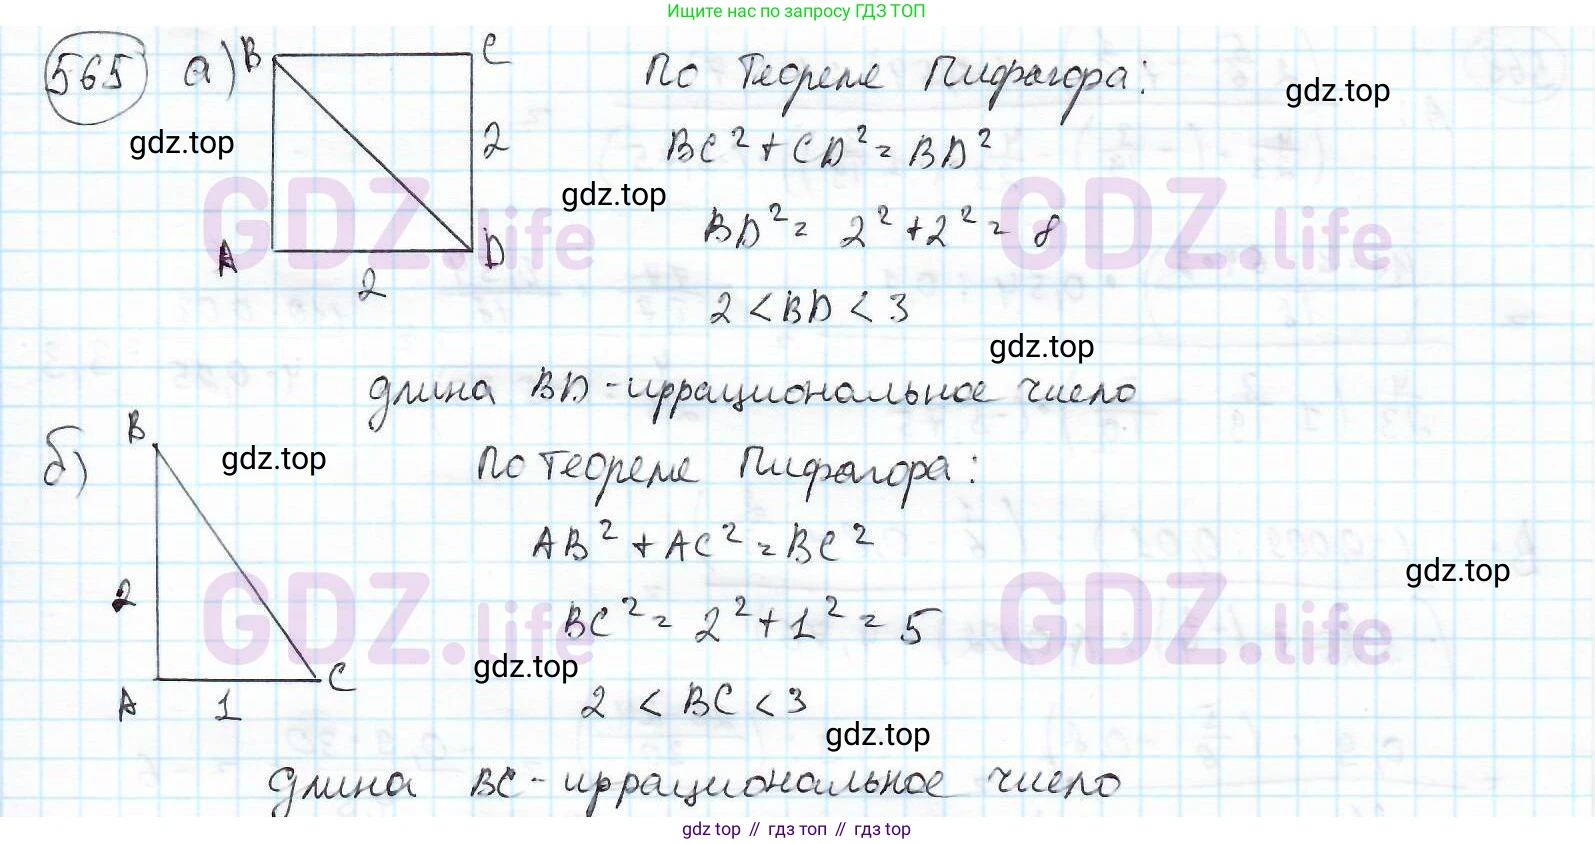 Ищите нас по запросу ГДЗ ТОП
565 а) B C
По теореме Пифагора:
gdz.top
gdz.top
2
BC² + CD² = BD²
gdz.top
GDZ.life
GDZ.life
BD² = 2² + 2² = 8
A D
2
2 < BD < 3
gdz.top
длина BD - иррациональное число
б) B
gdz.top
По теореме Пифагора:
AB² + AC² = BC²
gdz.top
2
GDZ.life
GDZ.life
BC² = 2² + 1² = 5
gdz.top
A 1 C
2 < BC < 3
gdz.top
длина BC - иррациональное число
gdz top // гдз топ // gdz top